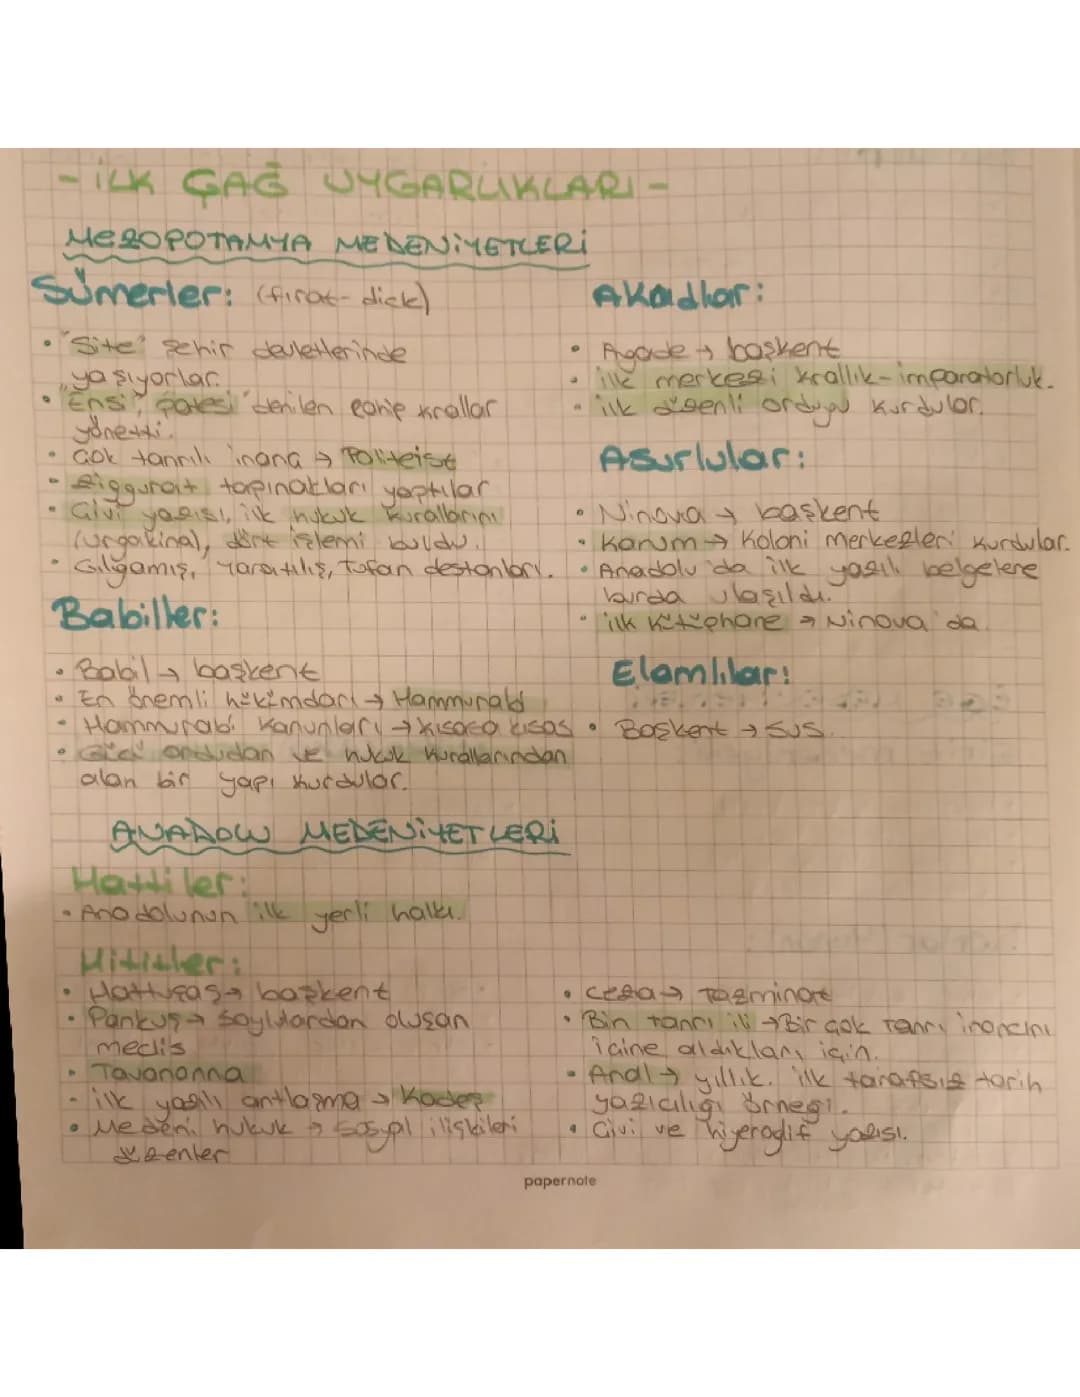 - iLK ÇAĞ UYGARLIKLARI -
MEZOPOTAMYA MEDENİYETLERİ
Sümerler: (fırat-dicle)
• "Site" şehir devletlerinde
yaşıyorlar.
• "Ensi", "patesi" denilen rahip krallar
yönetti.
• Çok tanrılı inanç → Politeist
• Ziggurat tapınakları yaptılar
• Çivi yazısı, ilk hukuk kurallarını
(Urgakina), dört işlemi buldu.
• Gılgamış, Yaratılış, Tufan destanları.
Babiller:
• Babil → başkent
• En önemli hükümdarı → Hammurabi
• Hammurabi Kanunları → kısasa kısas
• Gücü ordudan ve hukuk kurallarından
alan bir yapı kurdular.
Akadlar:
• Agade → başkent
• ilk merkezi krallık-imparatorluk.
• ilk düzenli orduyu kurdular.
Asurlular:
• Ninova → başkent
• Karum → Koloni merkezleri kurdular.
• Anadolu'da ilk yazılı belgelere
burda ulaşıldı.
• ilk kütüphane → Ninova'da
Elamlılar:
• Başkent → SUS.
ANADOLU MEDENİYETLERİ
Hattiler:
• Anadolunun ilk yerli halkı.
Hititler:
• Hattuşaş → başkent
• Pankuş → Soylulardan oluşan
meclis
• Tavananna
• ilk yazılı antlaşma → Kadeş
• Medeni hukuk → Sosyal ilişkileri
düzenler
• ceza → Tazminat
• Bin tanrı ili → Bir çok Tanrı inancını
içine aldıkları için.
• Anal → yıllık. ilk tarafsız tarih
yazıcılığı örneği.
• Çivi ve hiyeroglif yazısı.
papernote